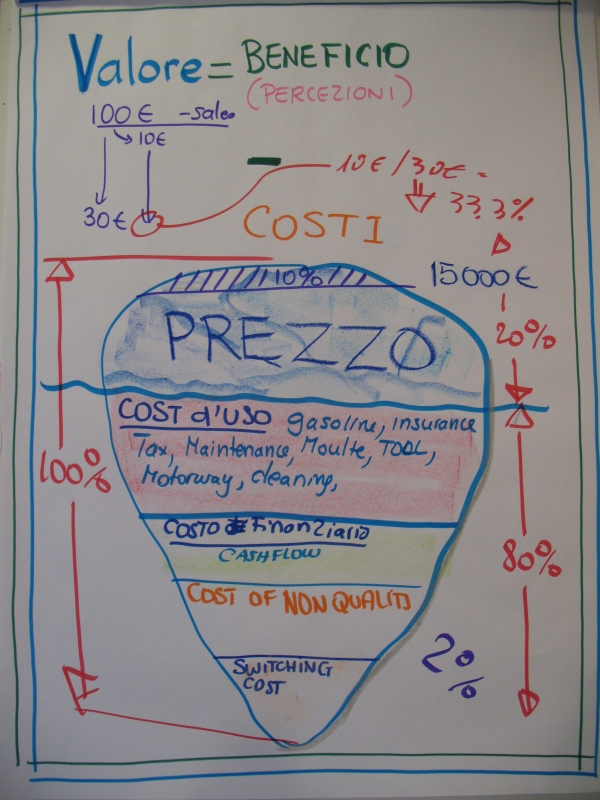 Valore = BENEFICIO
(PERCEZIONI)
100€ - sales
10€
30€
10€/30€ =
33.3%
COSTI
10%
15000€
PREZZO
20%
COST d'USO gasoline, insurance
Tax, Maintenance, Moulte, TOOL,
Motorway, cleaning,
100%
COSTO Finanziario
CASHFLOW
80%
COST OF NON QUALITY
2%
SWITCHING
COST